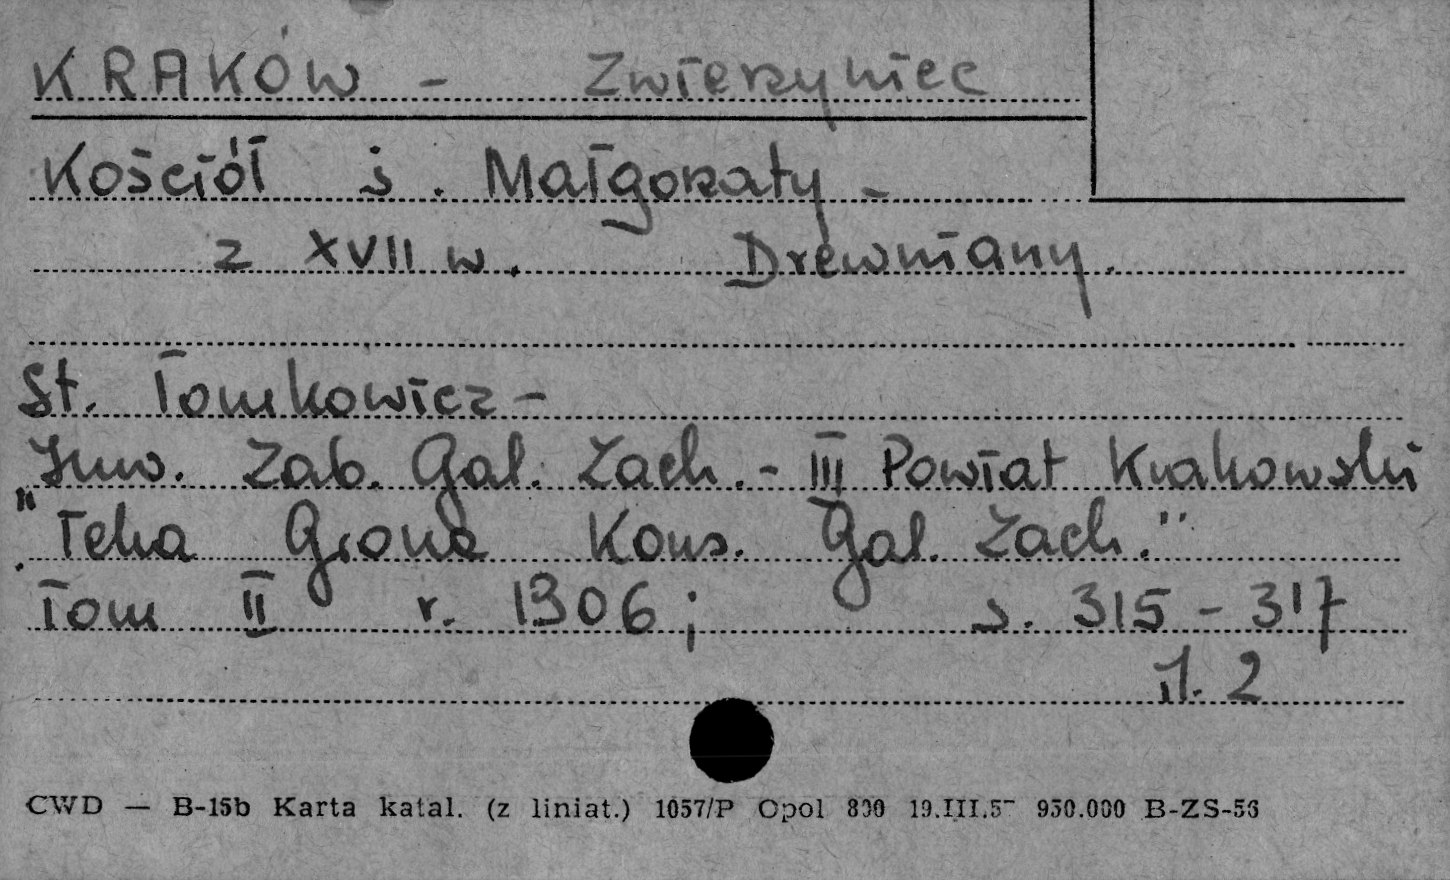 KRAKÓW - Zwierzyniec
Kościół ś. Małgorzaty -
z XVII w. Drewniany.
St. Tomkowicz -
Inw. Zab. Gal. Zach. - III Powiat Krakowski
"Teka Grona Kons. Gal. Zach."
Tom II r. 1906; s. 315 - 317
il. 2
CWD — B-15b Karta katal. (z liniat.) 1057/P Opol 800 19.III.5 950.000 B-ZS-56